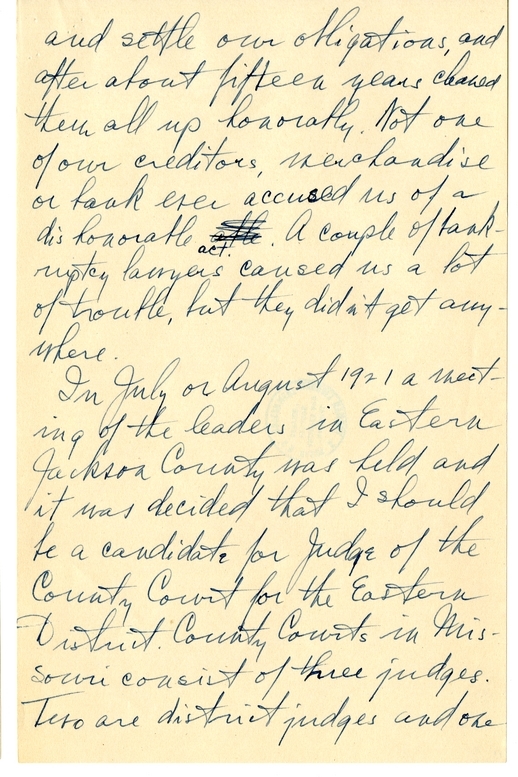 and settle our obligations, and
after about fifteen years cleaned
them all up honorably. Not one
of our creditors, merchandise
or bank ever accused us of a
dishonorable act. A couple of bank-
ruptcy lawyers caused us a lot
of trouble, but they didn't get any-
where.
In July or August 1921 a meet-
ing of the leaders in Eastern
Jackson County was held and
it was decided that I should
be a candidate for Judge of the
County Court for the Eastern
District. County Courts in Mis-
souri consist of three judges.
Two are district judges and one